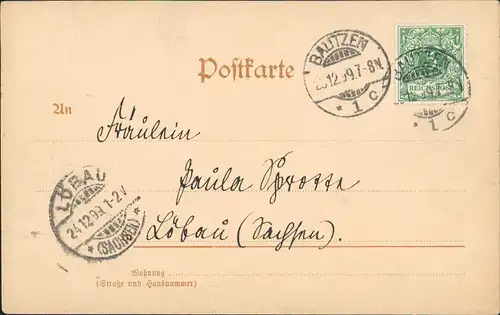 Postkarte
BAUTZEN
23.12.99.7-8N.
* 1 c
REICHSPOST
BAUTZEN
* 1 c
An
Fräulein
Paula Sprotte
Löbau (Sachsen).
LÖBAU
24.12.99.1-2V
* (SACHSEN) *
Wohnung
(Straße und Hausnummer)